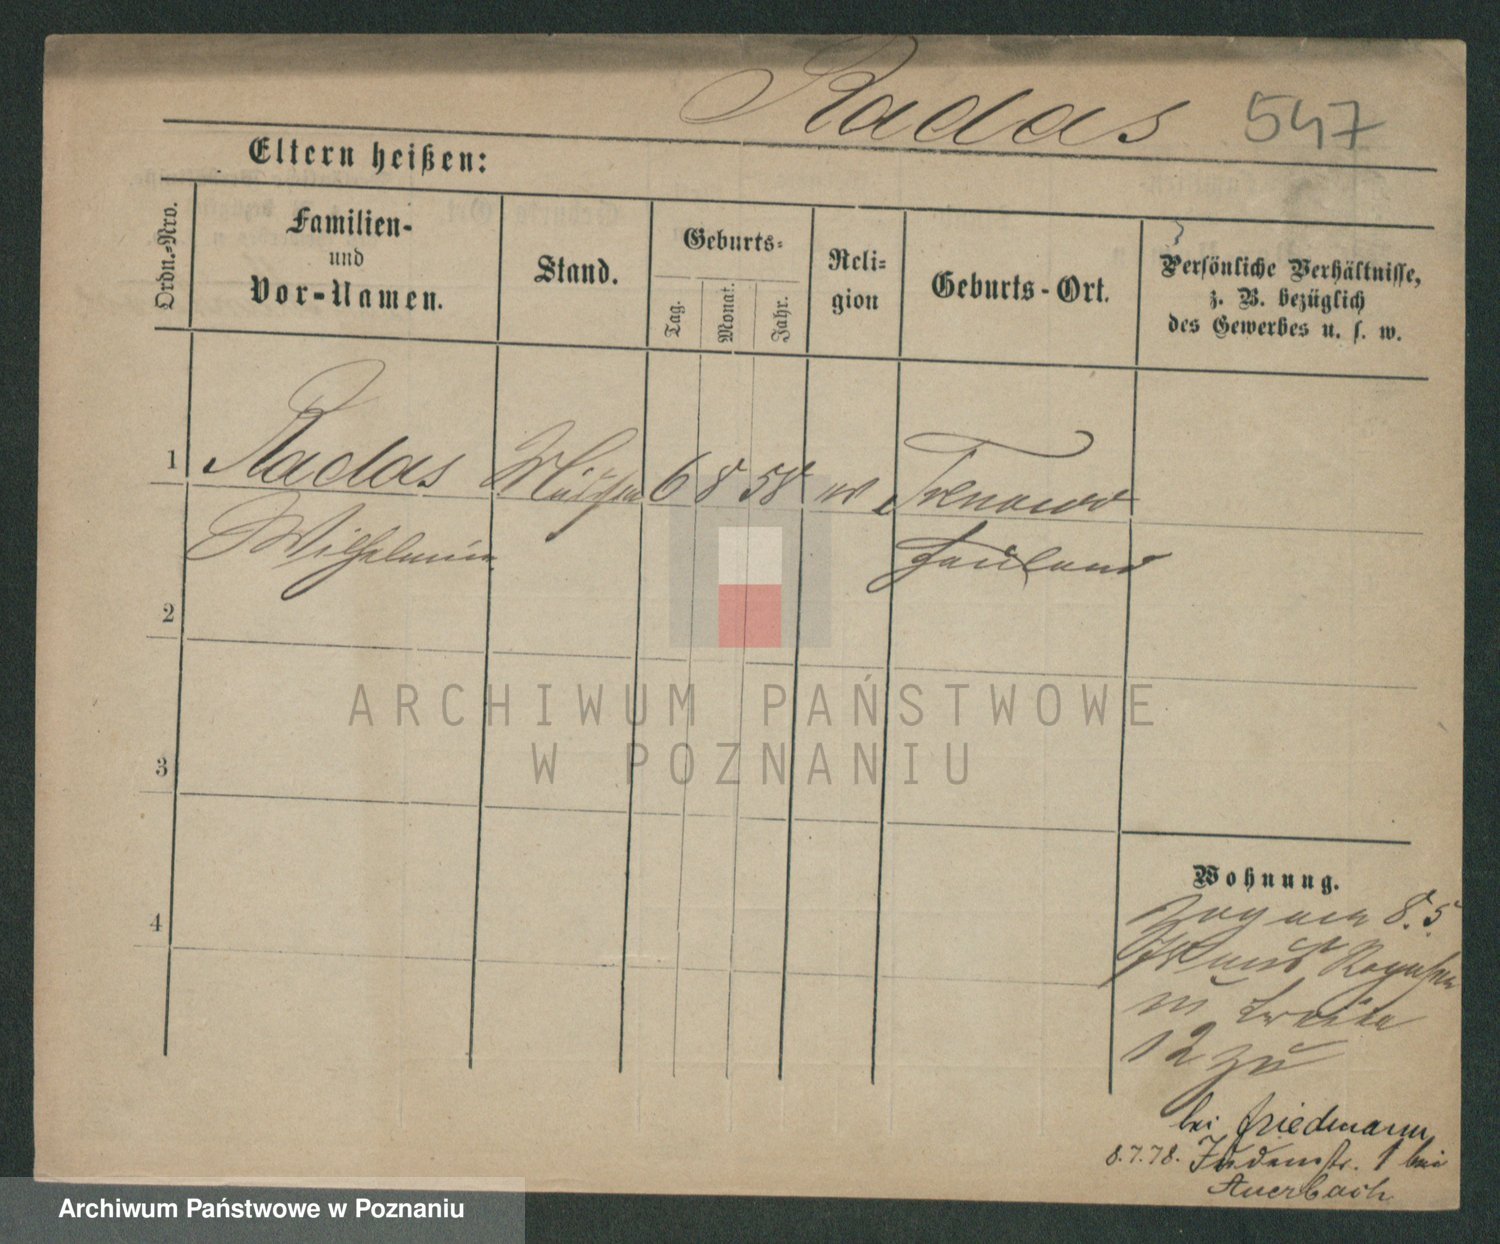 Radas 547
Eltern heißen:
Ordn.-Nro.
Familien-
und
Vor-Namen.
Stand.
Geburts-
Tag.
Monat.
Jahr.
Reli-
gion
Geburts-Ort.
Persönliche Verhältnisse,
z. B. bezüglich
des Gewerbes u. s. w.
1 Radas 6 8 58
Wilhelmine
Hauland
2
3
4
Wohnung.
8.5
12 zu
bei Friedmann
8.7.78. Judenstr. 1 bei
Auerbach
ARCHIWUM PAŃSTWOWE
W POZNANIU
Archiwum Państwowe w Poznaniu